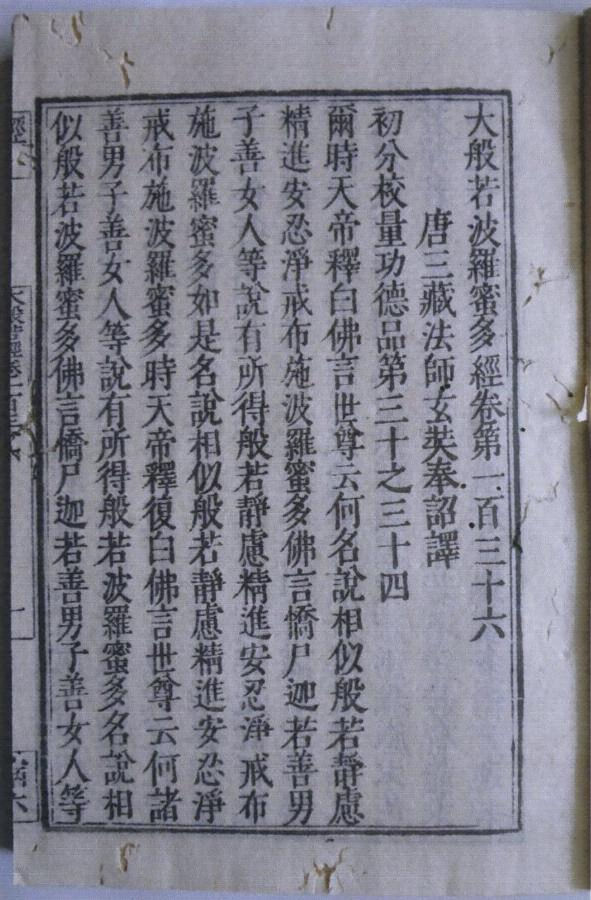 大般若波羅蜜多經卷第一百三十六
唐三藏法師玄奘奉詔譯
初分校量功德品第三十之三十四
爾時天帝釋白佛言世尊云何名說相似般若靜慮
精進安忍淨戒布施波羅蜜多佛言憍尸迦若善男
子善女人等說有所得般若靜慮精進安忍淨戒布
施波羅蜜多如是名說相似般若靜慮精進安忍淨
戒布施波羅蜜多時天帝釋復白佛言世尊云何諸
善男子善女人等說有所得般若波羅蜜多名說相
似般若波羅蜜多佛言憍尸迦若善男子善女人等
經
大般若經卷一百三
一